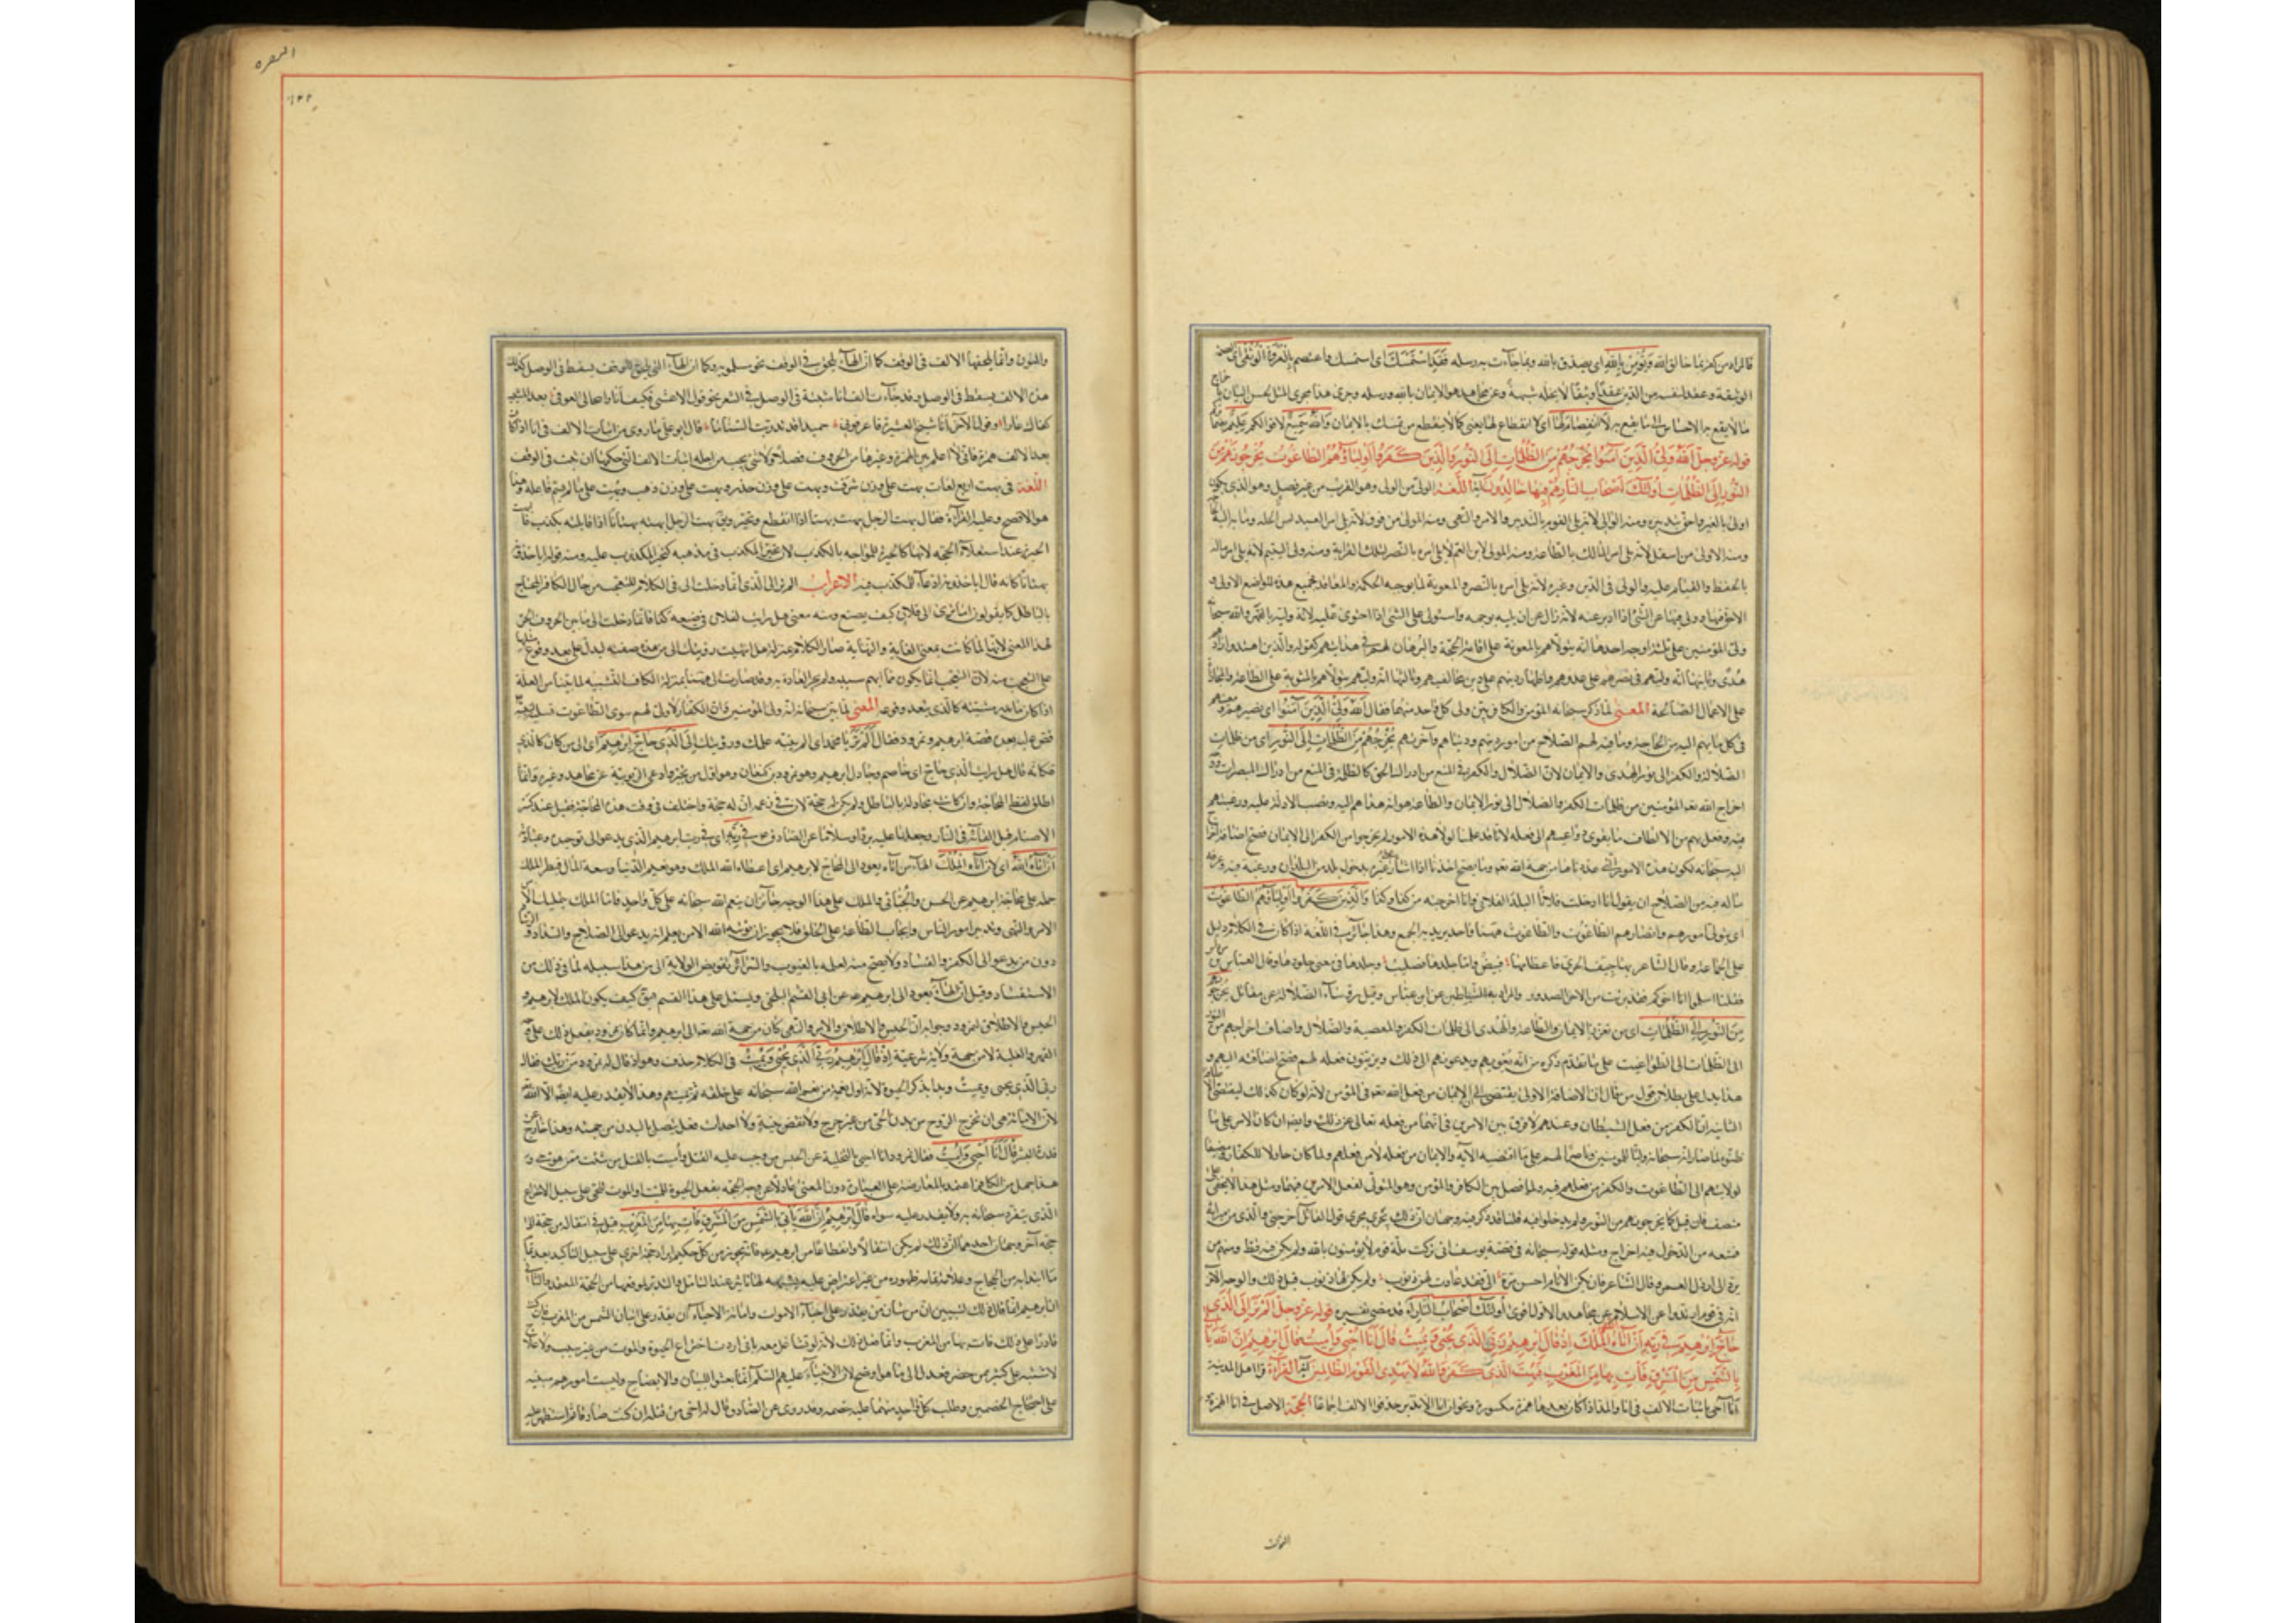 فالمراد من كفر بما خالق الله وَيُؤْمِنْ بِاللهِ اى يصدق بالله وبما جاءت به رسله فَقَدِ اسْتَمْسَكَ اى استمسك واعتصم بِالْعُرْوَةِ الْوُثْقٰى اى
الوثيقة وعقد لنفسه من الدين عقدًا وثيقًا لا يحله شبهة وعن مجاهد هو الايمان بالله ورسله وجرى هذا مجرى المثل لحسن البيان باخراج
ما لا يقع به الاحساس الى ما يقع به لَا انْفِصَامَ لَهَا اى لا انقطاع لها يعنى كما لا ينقطع من تمسك بالايمان وَاللهُ سَمِيعٌ لاقوالكم عَلِيمٌ بضمائركم
قوله عز وجل اَللهُ وَلِىُّ الَّذِينَ آمَنُوا يُخْرِجُهُمْ مِنَ الظُّلُمَاتِ اِلَى النُّورِ وَالَّذِينَ كَفَرُوا اَوْلِيَاؤُهُمُ الطَّاغُوتُ يُخْرِجُونَهُمْ مِنَ
النُّورِ اِلَى الظُّلُمَاتِ اُولٰئِكَ اَصْحَابُ النَّارِ هُمْ فِيهَا خَالِدُونَ آية اللغة الولى من الولى وهو القرب من غير فصل وهو الذى يكون
اولى بالغير واحق بتدبيره ومنه الوالى لانه يلى القوم بالتدبير والامر والنهى ومنه المولى من فوق لانه يلى امر العبد بسد الخلة وما به اليه الحاجة
ومنه المولى من اسفل لانه يلى امر المالك بالطاعة ومنه المولى لابن العم لانه يلى امره بالنصر لتلك القرابة ومنه ولى اليتيم لانه يلى امر ماله
بالحفظ والقيام عليه والولى فى الدين وغيره لانه يلى امره بالنصر والمعونة لما يوجبه الحكمة والمعاقدة فجميع هذه المواضع الاولى و
الاحق فيها وولى فيها عن الشئ اذا ادبر عنه لانه زال عن ان يليه بوجهه واستولى على الشئ اذا احتوى عليه لانه وليه بالقهر والله سبحانه
ولى المؤمنين على ثلثة اوجه احدها انه يتولاهم بالمعونة على اقامة الحجة والبرهان لهم فى هدايتهم كقوله والذين اهتدوا زادهم
هدى وثانيها انه وليهم فى نصرهم على عدوهم واظهار دينهم على دين مخالفيهم وثالثها انه وليهم يتولاهم بالمثوبة على الطاعة والمجازاة
على الاعمال الصالحة المعنى لما ذكر سبحانه المؤمن والكافر بين ولى كل واحد منهما فقال اَللهُ وَلِىُّ الَّذِينَ آمَنُوا اى نصيرهم ومعينهم
فى كل ما بهم اليه من الحاجة وما فيه لهم الصلاح من امور دينهم ودنياهم وآخرتهم يُخْرِجُهُمْ مِنَ الظُّلُمَاتِ اِلَى النُّورِ اى من ظلمات
الضلالة والكفر الى نور الهدى والايمان لان الضلال والكفر فى المنع من ادراك الحق كالظلمة فى المنع من ادراك المبصرات ووجه
اخراج الله تعالى المؤمنين من ظلمات الكفر والضلال الى نور الايمان والطاعة هو انه هداهم اليه ونصب الادلة عليه ورغبهم
فيه وفعل بهم من الالطاف ما يقوى دواعيهم الى فعله لانا قد علمنا لولا هذه الامور لم يخرجوا من الكفر الى الايمان فصح اضافة الاخراج
اليه سبحانه لكون هذه الامور التى عددناها من جهة الله تعالى وما يصح احدنا اذا اشار على غيره بدخول بلد من البلدان ورغبه فيه وعرفه
ماله فيه من الصلاح ان يقول انا ادخلت فلانًا البلد الفلانى وانا اخرجته من كذا وكذا وَالَّذِينَ كَفَرُوا اَوْلِيَاؤُهُمُ الطَّاغُوتُ
اى يتولى امورهم وانصارهم الطاغوت والطاغوت هيهنا واحد يريد به الجمع وهذا جائز فى اللغة اذا كان فى الكلام دليل
على الجماعة وقال الشاعر بها جيف الحسرى فاما عظامها فبيض واما جلدها فصليب وجلدها فى معنى جلودها وقال العباس بن مرداس
فقلنا اسلموا انا اخوكم فقد برئت من الاحن الصدور والمراد به الشياطين عن ابن عباس وقيل رؤساء الضلالة عن مقاتل يُخْرِجُونَهُمْ
مِنَ النُّورِ اِلَى الظُّلُمَاتِ اى من نور الايمان والطاعة والهدى الى ظلمات الكفر والمعصية والضلال واضاف اخراجهم من النور
الى الظلمات الى الطواغيت على ما تقدم ذكره من انه يغويهم ويدعونهم الى ذلك ويزينون فعله لهم فصح اضافته اليهم و
هذا يدل على بطلان قول من قال ان الاضافة الاولى يقتضى ان الايمان من فعل الله تعالى فى المؤمن لانه لو كان كذلك ليقتضى الاضافة
الثانية ان الكفر من فعل الشيطان وعندهم لا فرق بين الامرين فى انهما من فعله تعالى عن ذلك وايضا فان كان الامر على ما
ظنوه لما صار الله سبحانه وليًا للمؤمنين وناصرًا لهم على ما اقتضته الآية والايمان من فعله لا من فعلهم ولما كان خاذلا للكفار ومضيفا
لولايتهم الى الطاغوت والكفر من فعلهم فيهم ولم فاصل بين الكافر والمؤمن وهو المتولى لفعل الامرين فيهما ومثل هذا لا يخفى على
منصف فان قيل كيف يخرجونهم من النور ولم يدخلوا فيه قلنا قد ذكر فيه وجهان ان ذلك يجرى مجرى قول القائل اخرجنى والدى من ميراثه
فمنعه من الدخول فيه اخراج ومثله قوله سبحانه فى قصة يوسف انى تركت ملة قوم لا يؤمنون بالله ولم يكن فيه قط ومنهم من
يرد الى ارذل العمر وقال الشاعر فان تكن الايام احسن مرة الى فقد عادت لهن ذنوب ولم يكن لها ذنوب قبل ذلك والوجه الآخر
انه فى قوم ارتدوا عن الاسلام عن مجاهد والاول اقوى اُولٰئِكَ اَصْحَابُ النَّارِ الآية قد مضى تفسيره قوله عز وجل اَلَمْ تَرَ اِلَى الَّذِى
حَاجَّ اِبْرٰهِيمَ فِى رَبِّهِ اَنْ آتَاهُ اللهُ الْمُلْكَ اِذْ قَالَ اِبْرٰهِيمُ رَبِّىَ الَّذِى يُحْيِى وَيُمِيتُ قَالَ اَنَا اُحْيِى وَاُمِيتُ قَالَ اِبْرٰهِيمُ فَاِنَّ اللهَ يَأْتِى
بِالشَّمْسِ مِنَ الْمَشْرِقِ فَأْتِ بِهَا مِنَ الْمَغْرِبِ فَبُهِتَ الَّذِى كَفَرَ وَاللهُ لَا يَهْدِى الْقَوْمَ الظَّالِمِينَ آية القراءة قرا اهل المدينة
اَنَا اُحْيِى باثبات الالف فى انا والمد اذا كان بعدها همزة مكسورة ونحو ان انا الا نذير حذفوا الالف اجماعًا الحجة الاصل فى انا الهمزة
البقره
والنون وانما يلحقها الالف فى الوقف كما ان الهاء تلحق فى الوقف نحو مسلمونه وكما ان الهاء التى تلحق للوقف يسقط فى الوصل كذلك
هذه الالف يسقط فى الوصل وقد جاءت الف انا مثبتة فى الوصل فى الشعر نحو قول الاعشى فكيف انا وانتحالى القوافى بعد المشيب
كفى ذاك عارا وقول الآخر انا شيخ العشيرة فاعرفونى حميدا قد تذريت السناما قال ابو على ما روى من اثبات الالف فى انا اذا كان
بعد الالف همزة فانى لا اعلم بين الهمزة وغيرها من الحروف فصلا ولا شئ يجب من اجله اثبات الالف التى حكمها ان يثبت فى الوقف
اللغة فى بهت اربع لغات بهت على وزن شرف وبهت على وزن حذر وبهت على وزن ذهب وبهت على ما لم يسم فاعله وهذا
هو الافصح وعليه القراءة فقال بهت الرجل يبهت بهتا اذا انقطع وتحير ويق بهت الرجل ابهته بهتانا اذا قابلته بكذب فالبهت
الحيرة عند استعلاء الحجة لانها كالحيرة للمواجه بالكذب لان تحير المكذب فى مذهبه كتحير المكذوب عليه ومنه قوله اتأخذونه
بهتانًا كانه قال اتأخذونه ادعاء للكذب فيه الاعراب الم تر الى الذى انما دخلت الى فى الكلام للتعجب من حال الكافر المحاج
بالباطل كما يقولون اما ترى الى فلان كيف يصنع ومنه معنى هل رايت كفلان فى صنيعه كذا فانما دخلت الى ما بين الحروف
لهذا المعنى لانها لما كانت بمعنى الغاية والنهاية صار الكلام بمنزلة هل انتهت رؤيتك الى من هذه صفته ليدل على بعد وقوع مثله
على التعجب منه لان التعجب انما يكون مما ابهم سببه ولم يجر العادة به وقد صارت الى هيهنا بمنزلة الكاف التشبيه لما بينا من العلة
اذا كان ما بعد بمشبه كالذى يبعد وقوعه المعنى لما بين سبحانه انه ولى المؤمنين وان الكفار لا ولى لهم سوى الطاغوت تسلية لنبيه
قص عليه بعده قصة ابرهيم ونمرود فقال اَلَمْ تَرَ يا محمد اى الم ينته علمك ورؤيتك اِلَى الَّذِى حَاجَّ اِبْرٰهِيمَ اى الى من كان كالذى
فكانه قال هل رايت الذى حاج اى خاصم وجادل ابرهيم وهو نمرود بن كنعان وهو اول من تجبر وادعى الربوبية عن مجاهد وغيره وانما
اطلق لفظ المحاجة وان كانت مجادلة بالباطل ولم يكن له حجة لان فى زعمه ان له حجة واختلف فى وقت هذه المحاجة فقيل عند كسر
الاصنام قبل القائه فى النار وجعلها عليه بردا وسلاما عن الصادق ع فِى رَبِّهِ اى فى رب ابرهيم الذى يدعو الى توحيده وعبادته
اَنْ آتَاهُ اللهُ اى لان آتاه الْمُلْكَ الهاء من آتاه يعود الى المحاج لابرهيم اى اعطاه الله الملك وهو نعيم الدنيا وسعة المال فبطر الملك
حمله على محاجة ابرهيم عن الحسن والجبائى والملك على هذا الوجه جائز ان ينعم الله سبحانه على كل واحد فاما الملك بتمليك الامر
الامر والنهى وتدبير امور الناس وايجاب الطاعة على الخلق فلا يجوز ان يؤتيه الله الا من يعلم انه يدعو الى الصلاح والسداد والرشاد
دون من يدعو الى الكفر والفساد ولا يصح منه لعلمه بالغيوب والسرائر تفويض الولاية الى من هذا سبيله لما فى ذلك من
الاستفساد وقيل ان الهاء يعود الى ابرهيم عه عن ابى القسم البلخى ويسئل على هذا القسم فيق كيف يكون الملك لابرهيم و
الحبس والاطلاق لنمرود وجوابه ان الحبس والاطلاق والامر والنهى كان من جهة الله تعالى لابرهيم وانما كان نمرود يفعل ذلك على وجه
القهر والغلبة لا من جهة ولاية شرعية اِذْ قَالَ اِبْرٰهِيمُ رَبِّىَ الَّذِى يُحْيِى وَيُمِيتُ فى الكلام حذف وهو اذ قال له نمرود من ربك فقال
ربى الذى يحيى ويميت وبدا بذكر الحيوة لانه اول نعمة من نعم الله سبحانه على خلقه ثم يميتهم وهذا لا يقدر عليه ايضًا الا الله تعالى
لان الاماتة هى ان يخرج الروح من بدن الحى من غير جرح ولا نقض بنية ولا احداث فعل يتصل بالبدن من جهته وهذا خارج عن
قدرة البشر قَالَ اَنَا اُحْيِى وَاُمِيتُ فقال نمرود انا احيى بالتخلية عن الحبس من وجب عليه القتل واميت بالقتل من شئت ممن هو حى و
هذا جهل من الكافر لانه اعتمد بالمعارضة على العبارة دون المعنى عادلا عن وجه الحجة بفعل الحيوة للميت او الموت للحى على سبيل الاختراع
الذى يتفرد سبحانه به ولا يقدر عليه سواه قَالَ اِبْرٰهِيمُ فَاِنَّ اللهَ يَأْتِى بِالشَّمْسِ مِنَ الْمَشْرِقِ فَأْتِ بِهَا مِنَ الْمَغْرِبِ قيل فى انتقاله من حجة الى
حجة آخر وجهان احدهما ان ذلك لم يكن انتقالا وانقطاعًا من ابرهيم عه فانه يجوز من كل حكيم ايراد حجة اخرى على سبيل التاكيد بعد تمام
ما ابتدا به من الحجاج وعلامة تمامه ظهوره من غير اعتراض عليه بشبهة لها تاثير عند التامل والتدبر لموقعها من الحجة المعتمدة والثانى
ان ابرهيم انما قال ذلك ليتبين ان من شان من يقدر على احياء الاموات واماتة الاحياء ان يقدر على اتيان الشمس من المغرب فان كنت
قادرًا على ذلك فات بها من المغرب وانما فعل ذلك لانه لو تشاغل معه بانى اردت اختراع الحيوة والموت من غير سبب ولا علاج
لاشتبه على كثير ممن حضر فعدل الى ما هو اوضح لان الانبياء عليهم السلم انما بعثوا للبيان والايضاح وليست امورهم مبنية
على احتجاج الخصمين وطلب كل واحد منهما غلبة خصمه وقد روى عن الصادق قال له احى من قتلته ان كنت صادقًا ثم استظهر عليه